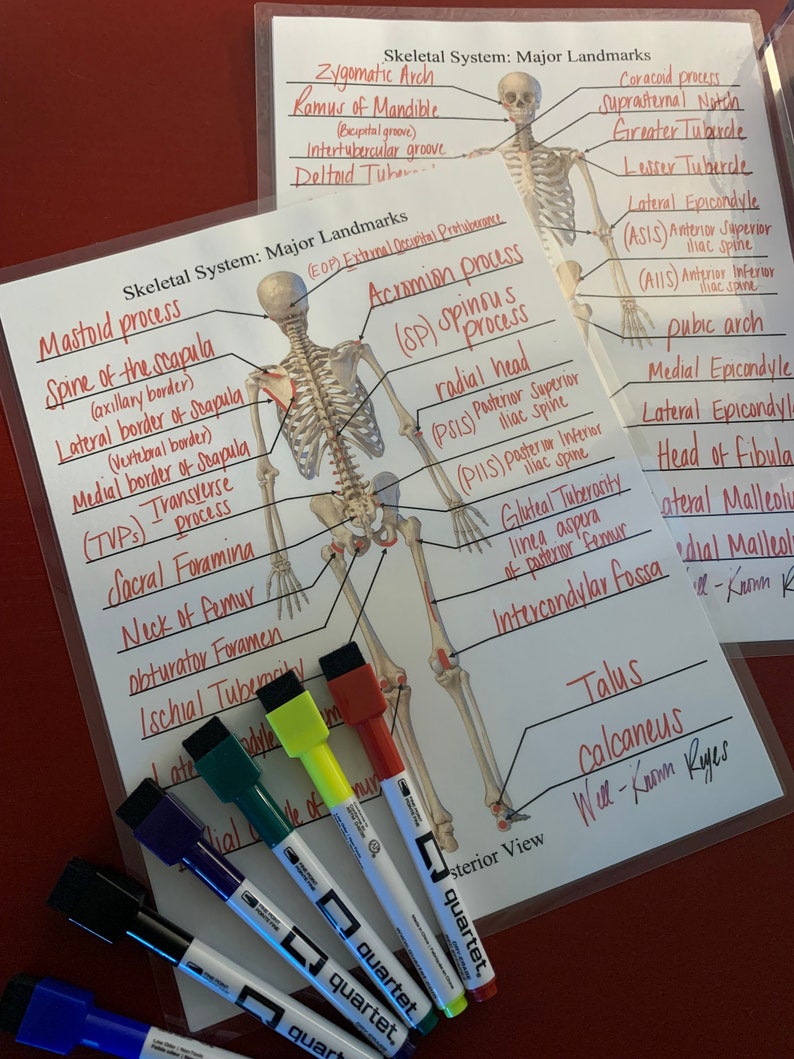 Skeletal System: Major Landmarks
Zygomatic Arch
Ramus of Mandible
(Bicipital groove)
Intertubercular groove
Deltoid
Coracoid process
Suprasternal Notch
Greater Tubercle
Lesser Tubercle
Lateral Epicondyle
(ASIS) Anterior Superior
iliac spine
(AIIS) Anterior Inferior
iliac spine
pubic arch
Medial Epicondyle
Lateral Epicondyle
Head of Fibula
Well-Known
Skeletal System: Major Landmarks
(EOP) External Occipital Protuberance
Mastoid process
Spine of the scapula
(axillary border)
Lateral border of scapula
(vertebral border)
Medial border of scapula
(TVPs) Transverse
Process
Sacral Foramina
Neck of femur
obturator Foramen
Ischial Tuberosity
Acromion process
(SP) spinous
process
radial head
(PSIS) Posterior Superior
iliac spine
(PIIS) Posterior Inferior
iliac spine
Gluteal Tuberosity
linea aspera
of posterior femur
Intercondylar fossa
Talus
Calcaneus
Well-Known Reyes
View
FINE POINT
POINTE FINE
quartet
FINE POINT
POINTE FINE
quartet
FINE POINT
POINTE FINE
quartet
quartet
DRY-ERASE
Low Odor | Non-Toxic